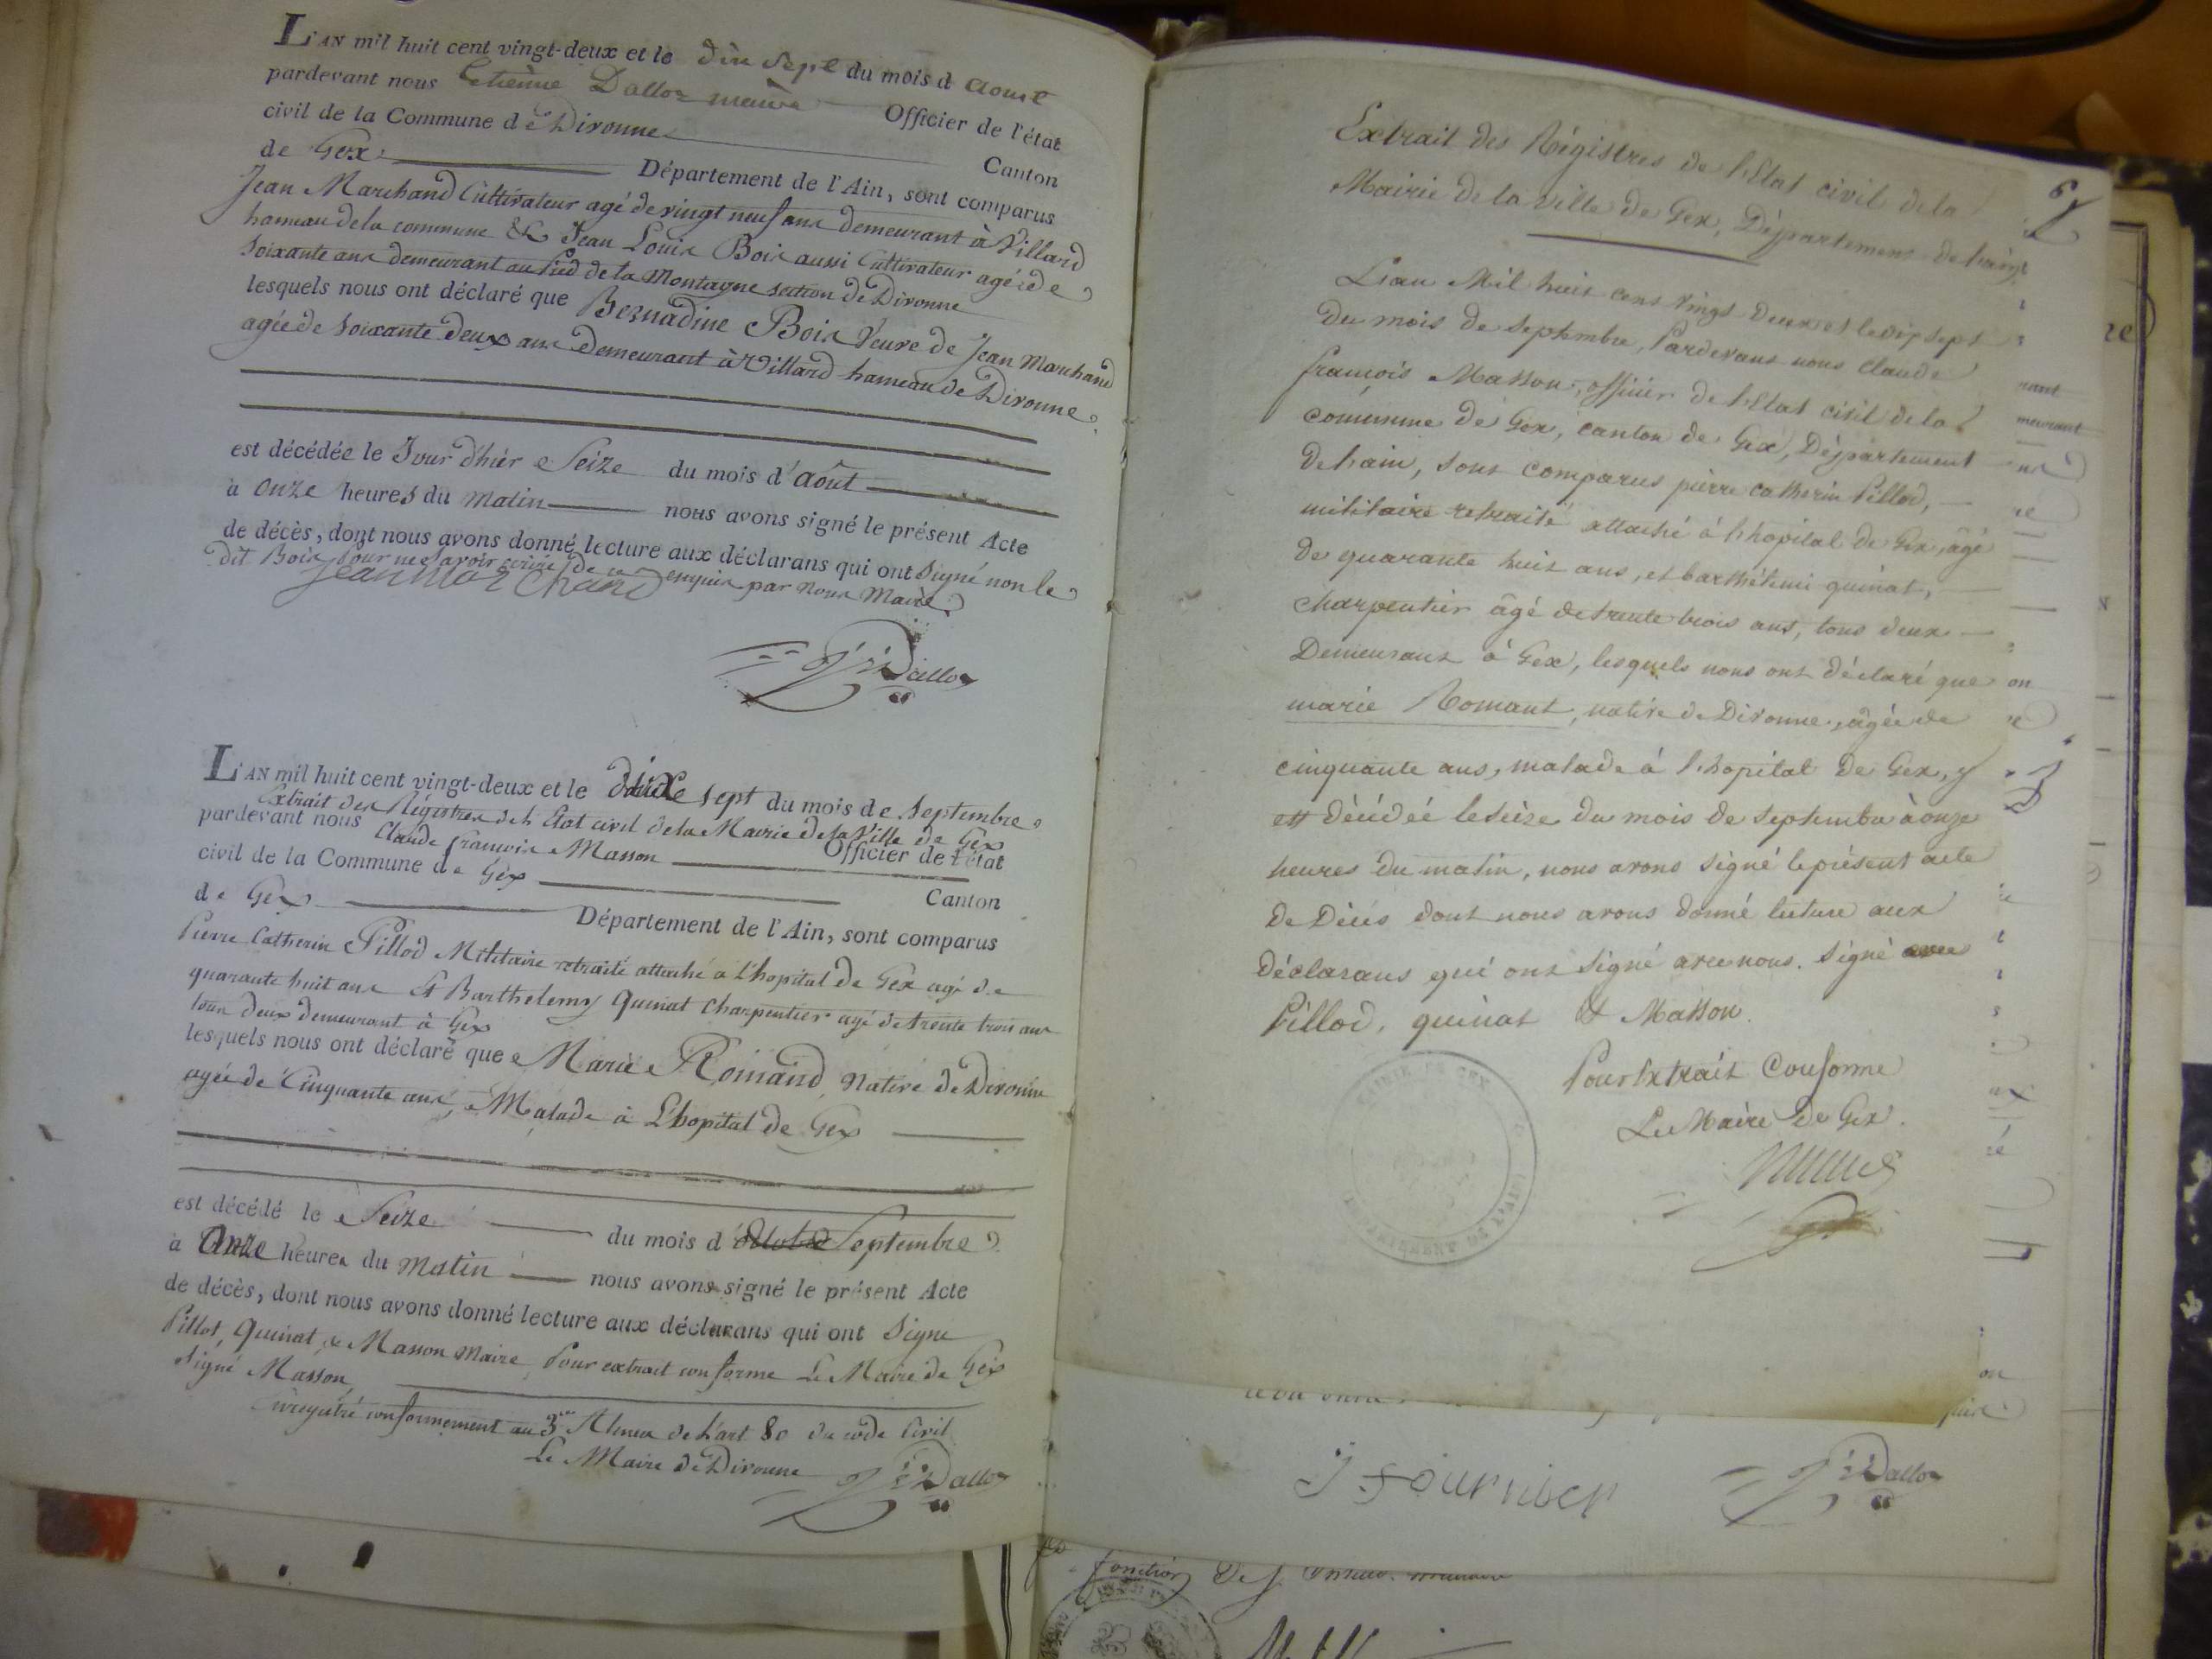 L'AN mil huit cent vingt-deux et le dix sept du mois d aout
pardevant nous Etienne Dalloz maire Officier de l'état
civil de la Commune de Divonne Canton
de Gex Département de l'Ain, sont comparus
Jean Marchand Cultivateur agé de vingt neuf ans demeurant à Villard
hameau de la commune & Jean Louis Bois aussi Cultivateur agé de
soixante ans demeurant au Pied de la Montagne section de Divonne
lesquels nous ont déclaré que Bernadine Bois Veuve de Jean Marchand
agée de soixante deux ans demeurant à Villard hameau de Divonne
est décédée le Jour d'hier Seize du mois d'août
à onze heures du matin nous avons signé le présent Acte
de décès, dont nous avons donné lecture aux déclarans qui ont signé non le
dit Bois pour ne savoir écrire de ce enquis par nous Maire
Jean marchand
Dalloz
L'AN mil huit cent vingt-deux et le dix sept du mois de Septembre
Extrait des Régistres de l'Etat civil de la Mairie de la Ville de Gex
pardevant nous Claude françois Masson Officier de l'état
civil de la Commune de Gex Canton
de Gex Département de l'Ain, sont comparus
Pierre Catherin Pillod Militaire retraité attaché à L'hopital de Gex agé de
quarante huit ans Et Barthelemy Quinat Charpentier agé de trente trois ans
tous deux demeurant à Gex
lesquels nous ont déclaré que Marie Romand, Native de Divonne
agée de Cinquante ans, Malade à L'hopital de Gex
est décédé le Seize du mois d'octobre Septembre
à Onze heures du matin nous avons signé le présent Acte
de décès, dont nous avons donné lecture aux déclarans qui ont Signé
Pillot, Quinat, & Masson Maire, Pour extrait conforme Le Maire de Gex
signé Masson
Enregistré conformement au 3me Alinea de L'art 80 du code Civil
Le Maire de Divonne Dalloz
Extrait des Régistres de l'Etat civil de la
Mairie de la Ville de Gex, Département de l'ain
L'an Mil huit cent vingt deux et le dix sept
du mois de septembre, Pardevant nous Claude
françois Masson, officier de l'Etat civil de la
commune de Gex, canton de Gex, Département
de l'ain, sont comparus pierre catherin Pillod,
militaire retraité attaché à l'hopital de Gex, âgé
de quarante huit ans, et barthélemi quinat,
charpentier âgé de trente trois ans, tous deux
Demeurant à Gex, lesquels nous ont déclaré que
marie Romant, native de Divonne, âgée de
cinquante ans, malade à l'hopital de Gex, y
est décédée le seize du mois de septembre à onze
heures du matin, nous avons signé le présent acte
de Décés dont nous avons donné lecture aux
déclarans qui ont signé avec nous. Signé avec
Pillod, quinat & Masson.
Pour Extrait Conforme
Le Maire de Gex.
MAIRIE DE GEX
DEPARTEMENT DE L'AIN
J fournier
Dalloz